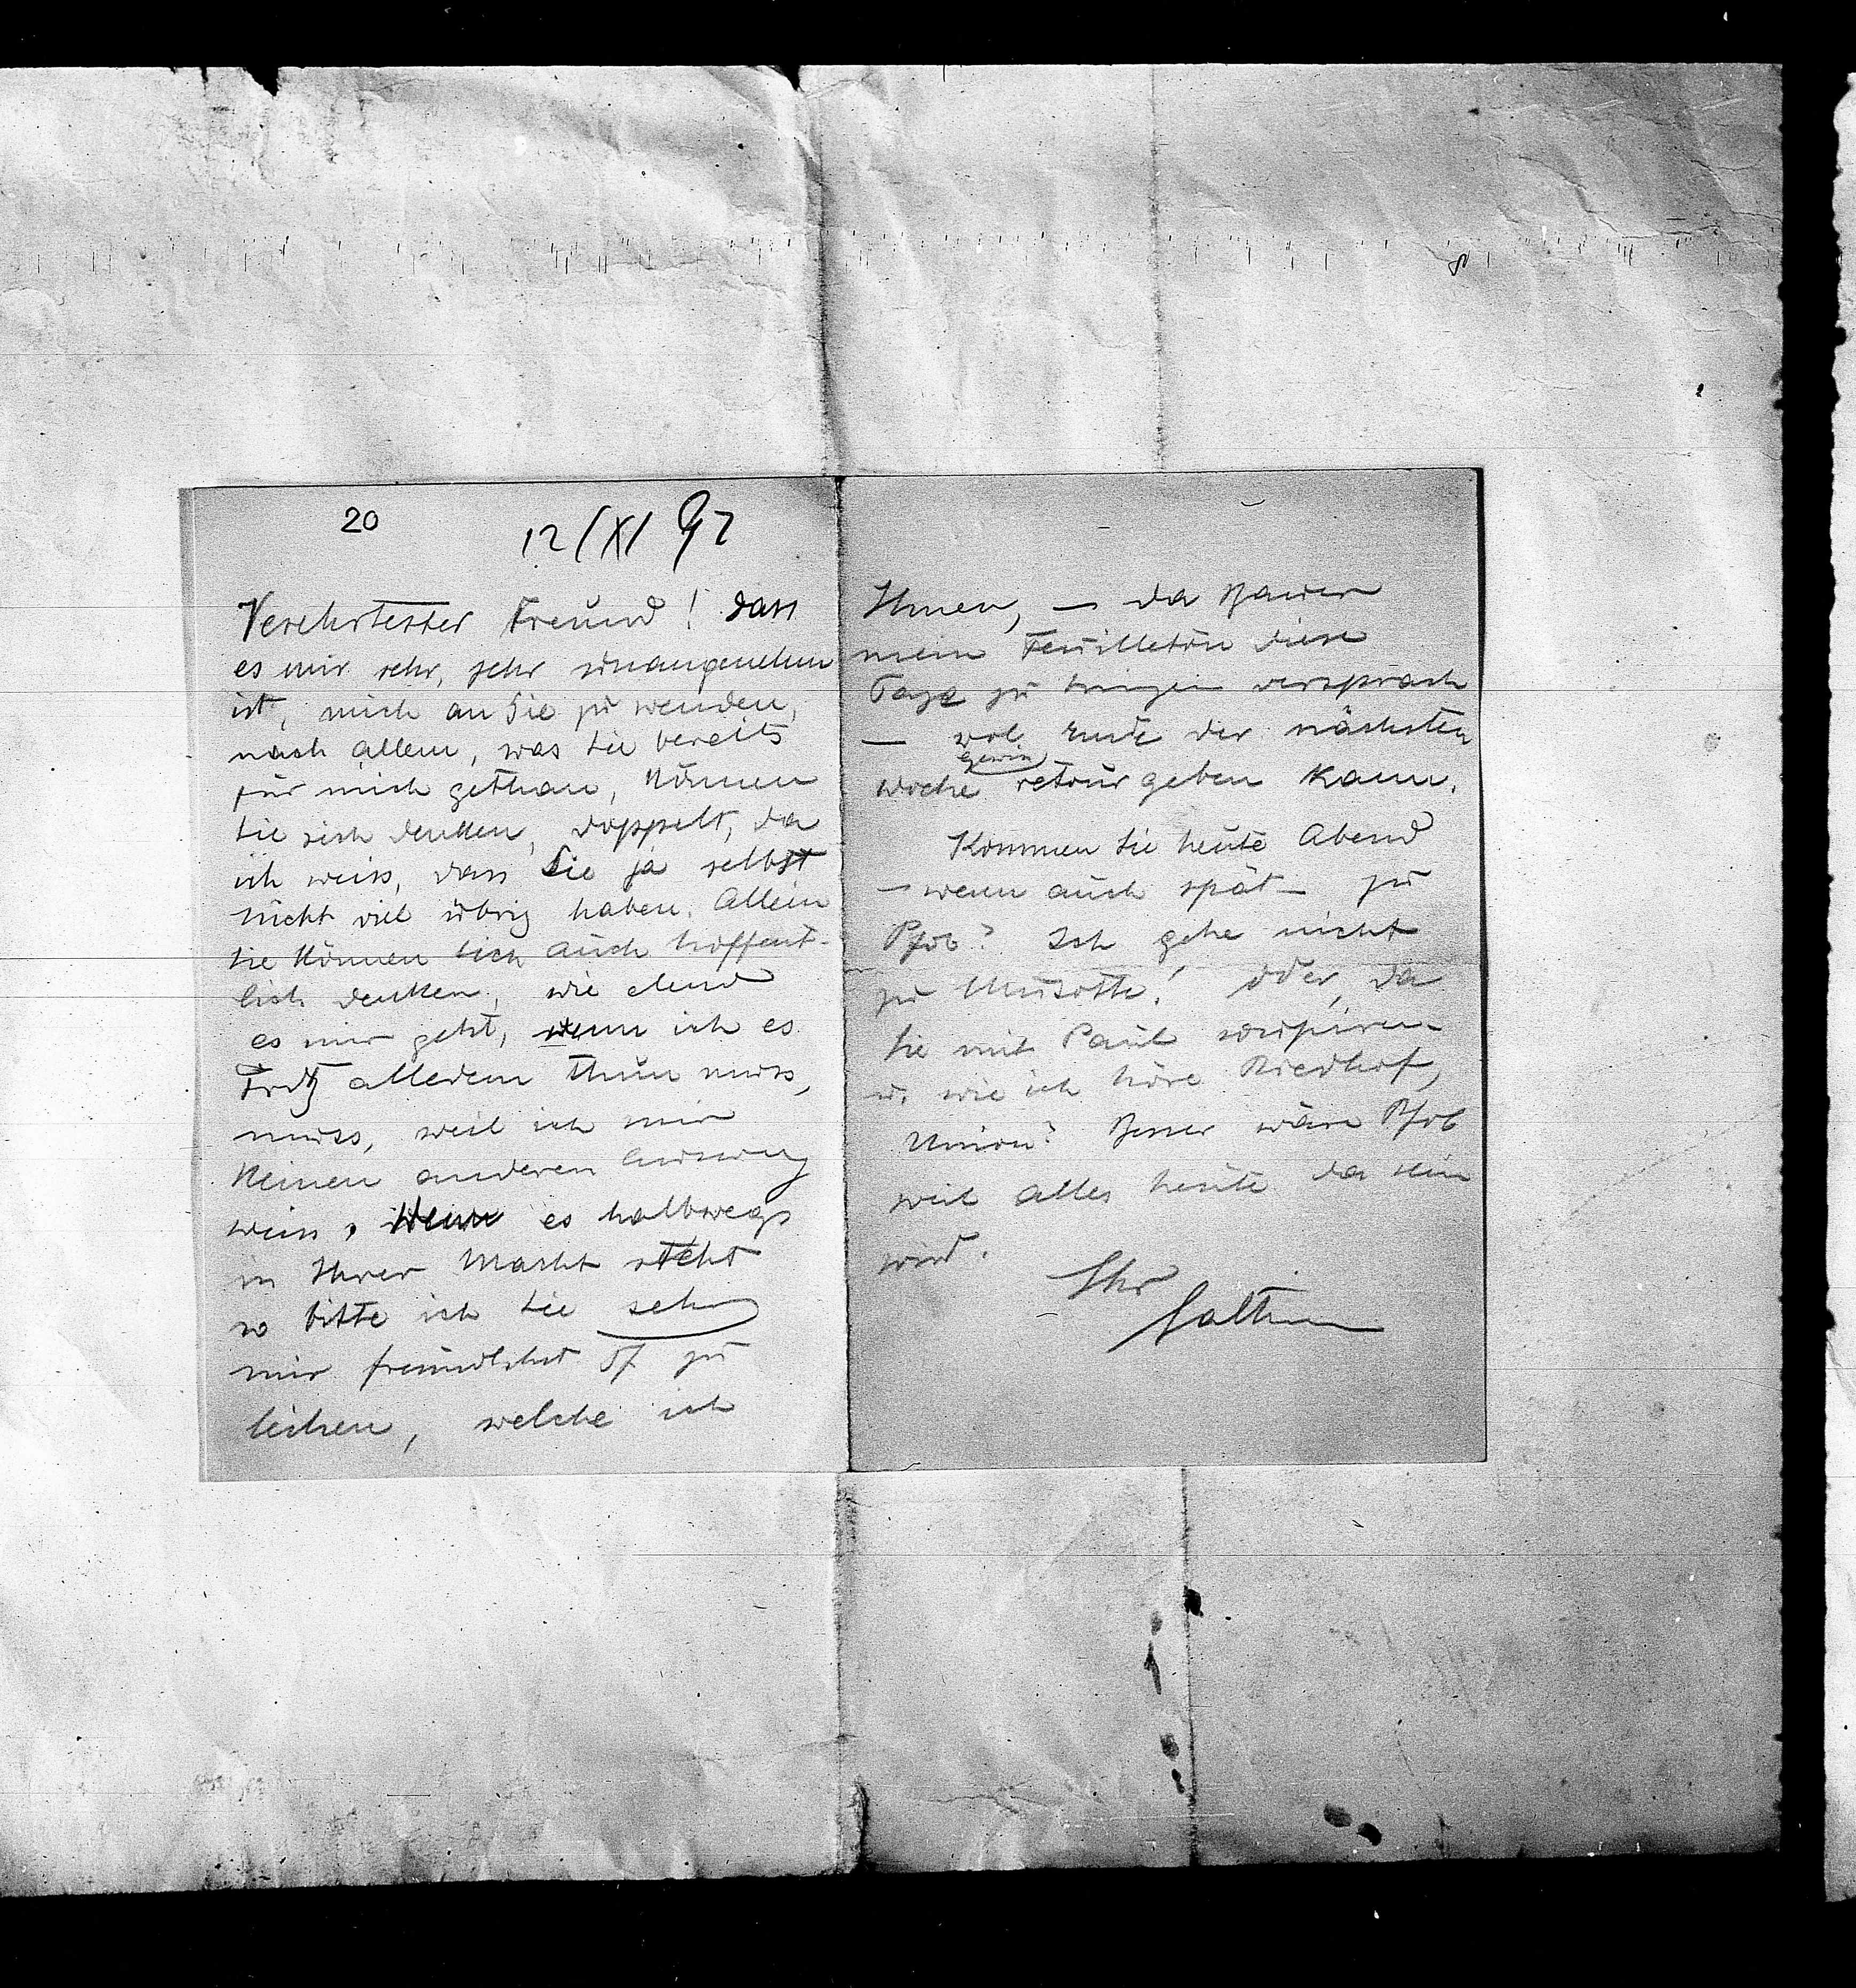 20
12/XI 92
Verehrtester Freund! dass
es mir sehr, sehr unangenehm
ist, mich an Sie zu wenden,
nach allem, was Sie bereits
für mich gethan, können
Sie sich denken, doppelt, da
ich weiss, dass Sie ja selbst
nicht viel übrig haben. Allein
Sie können sich auch hoffent-
lich denken, wie elend
es mir geht, wenn ich es
trotz alledem thun muss,
muss, weil ich mir
keinen anderen Ausweg
weiss. Wenn es halbwegs
in Ihrer Macht steht
so bitte ich Sie sehr
mir freundlichst 5f zu
leihen, welche ich
Ihnen, — da Bauer
mein Feuilleton diese
Tage zu bringen versprach
— wol Ende der nächsten
gewiss
Woche retour geben kann.
Kommen Sie heute Abend
— wenn auch spät — zu
Pfob? Ich gehe nicht
zu Musotte! Oder, da
Sie mit Paul soupiren
u. wie ich höre Riedhof,
Union? Besser wäre Pfob
weil alles heute da sein
wird.
Ihr
Salten